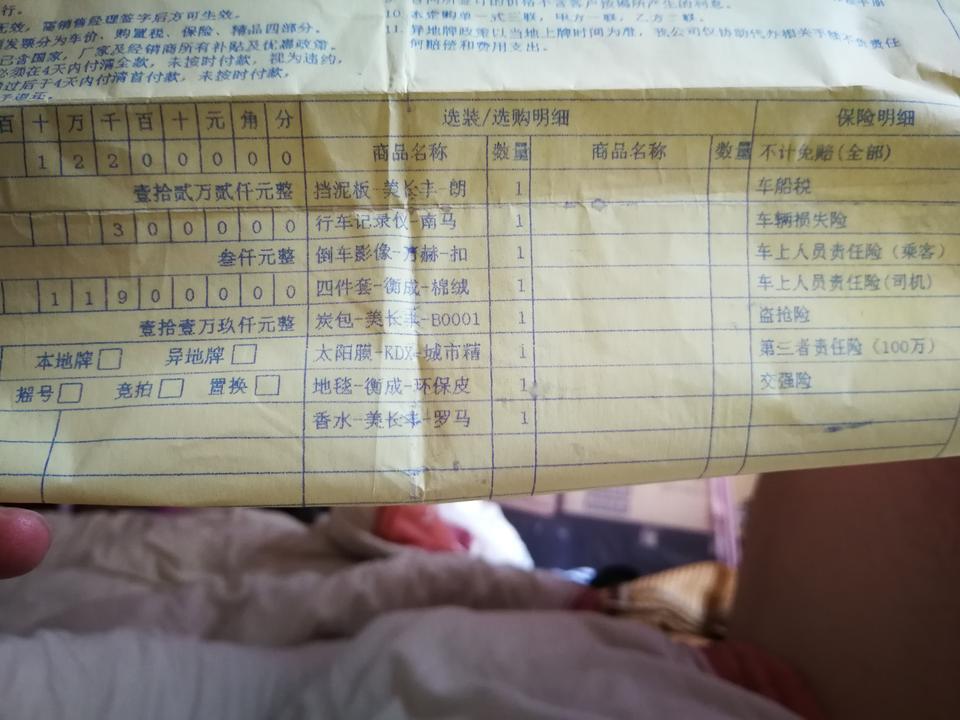 行。
无效，需销售经理签字后方可生效。
发票分为车价、购置税、保险、精品四部分。
已含国家，厂家及经销商所有补贴及优惠政策。
必须在4天内付清全款，未按时付款，视为违约，
过后于4天内付清首付款，未按时付款，
10. 本定购单一式三联，甲方一联，乙方二联。
11. 异地牌政策以当地上牌时间为准，我公司仅协助代办相关手续不负责任
何赔偿和费用支出。
百 十 万 千 百 十 元 角 分 选装/选购明细 保险明细
1 2 2 0 0 0 0 0 商品名称 数量 商品名称 数量 不计免赔(全部)
壹拾贰万贰仟元整 挡泥板-美长丰-朗 1 车船税
3 0 0 0 0 0 行车记录仪-南马 1 车辆损失险
叁仟元整 倒车影像-万赫-扣 1 车上人员责任险（乘客）
1 1 9 0 0 0 0 0 四件套-衡成-棉绒 1 车上人员责任险(司机)
壹拾壹万玖仟元整 炭包-美长丰-B0001 1 盗抢险
本地牌 异地牌 太阳膜-KDX-城市精 1 第三者责任险（100万）
摇号 竞拍 置换 地毯-衡成-环保皮 1 交强险
香水-美长丰-罗马 1